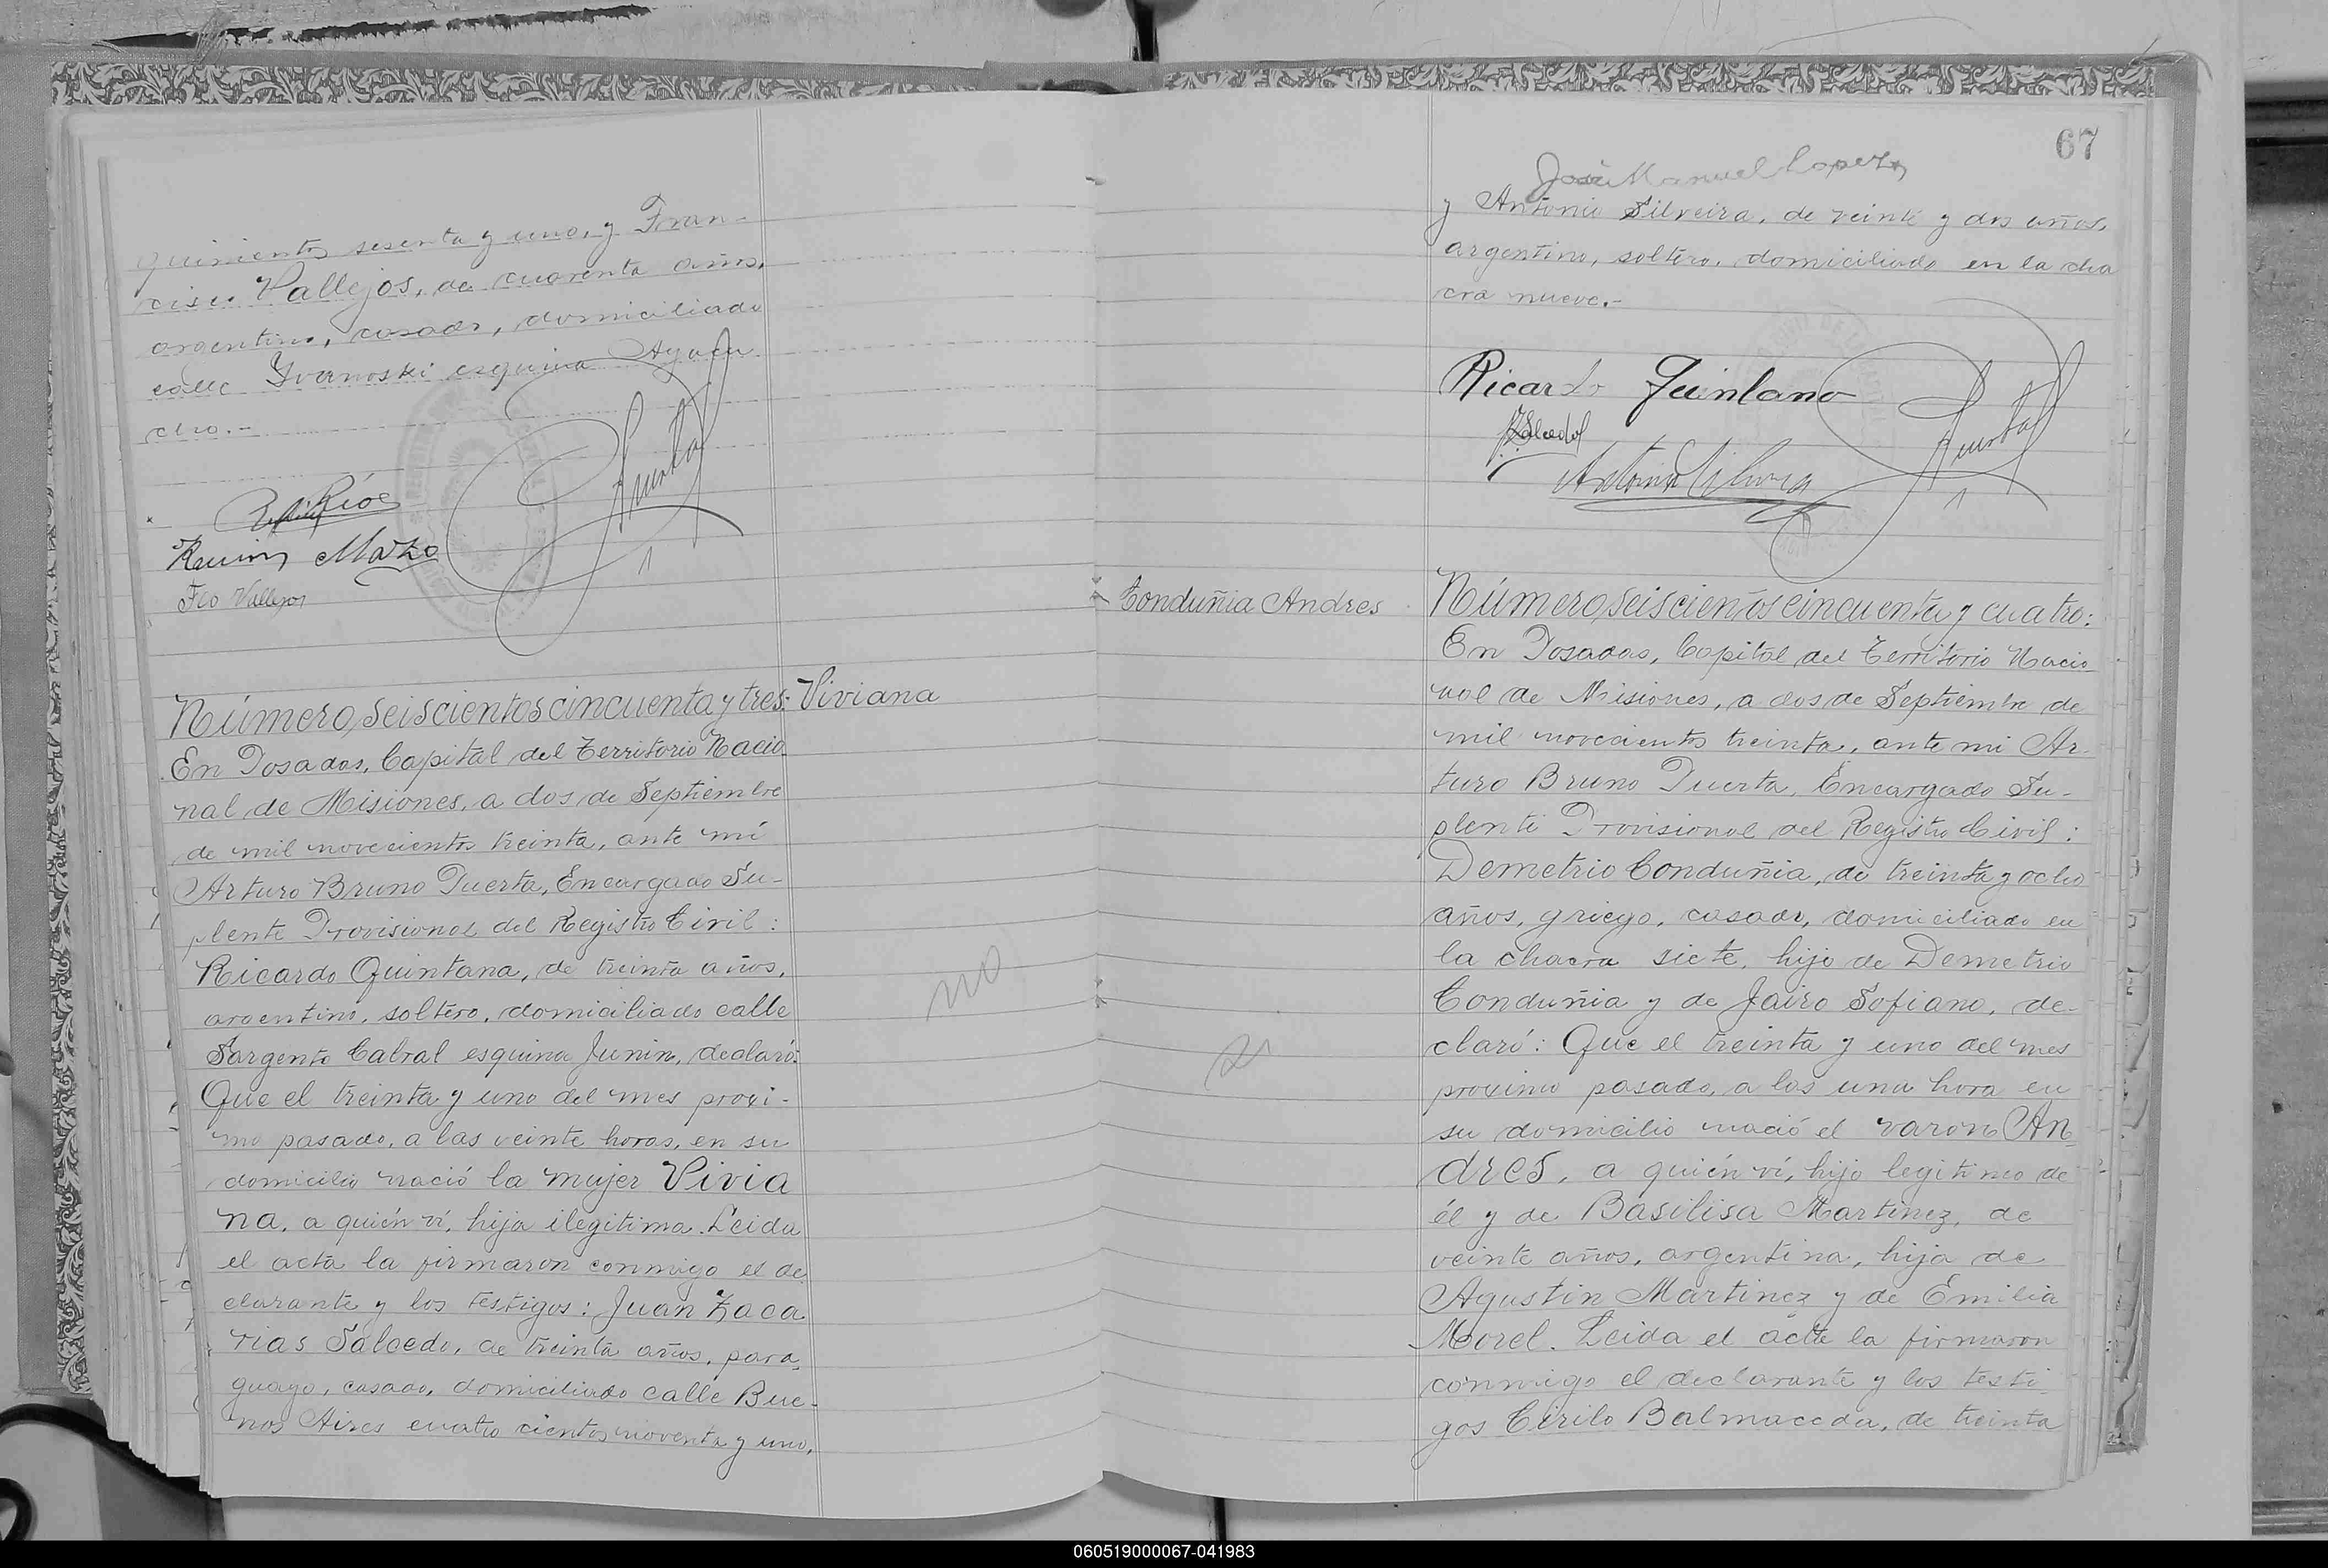 quinientos sesenta y uno, y Fran-
cisco Vallejos, de cuarenta años,
argentino, casado, domiciliado
calle Ivanoski esquina Ayacu
cho.-
Rios
Ramon
Fco Vallejos
Número, seiscientos cincuenta y tres: Viviana
En Posadas, Capital del Territorio Nacio
nal de Misiones, a dos de Septiembre
de mil novecientos treinta, ante mí
Arturo Bruno Puerta, Encargado Su-
plente Provisional del Registro Civil:
Ricardo Quintana, de treinta años,
argentino, soltero, domiciliado calle
Sargento Cabral esquina Junin, declaró:
Que el treinta y uno del mes proxi-
mo pasado, a las veinte horas, en su
domicilio nació la mujer Vivia
na, a quién ví, hija ilegitima. Leida
el acta la firmaron conmigo el de
clarante y los testigos: Juan Zaca
rias Salcedo, de treinta años, para
guayo, casado, domiciliado calle Bue-
nos Aires cuatro cientos noventa y uno,
no
67
José Manuel Lopez
y Antonio Silveira, de veinte y dos años,
argentino, soltero, domiciliado en la cha
cra nueve.-
Ricardo Quintana
JZSalcedo
Antonio Silveira
Puerta
Conduñia Andres
Número, seiscientos cincuenta y cuatro:
En Posadas, Capital del Territorio Nacio
nal de Misiones, a dos de Septiembre de
mil novecientos treinta, ante mi Ar-
turo Bruno Puerta, Encargado Su-
plente Provisional del Registro Civil:
Demetrio Conduñia, de treinta y ocho
años, griego, casado, domiciliado en
la chacra siete, hijo de Demetrio
Conduñia y de Jairo Sofiano, de-
claró: Que el treinta y uno del mes
proximo pasado, a las una hora en
su domicilio nació el varon An
dres, a quién ví, hijo legitimo de
él y de Basilisa Martinez, de
veinte años, argentina, hija de
Agustin Martinez y de Emilia
Morel. Leida el acta la firmaron
conmigo el declarante y los testi
gos Cirilo Balmaceda, de treinta
060519000067-041983